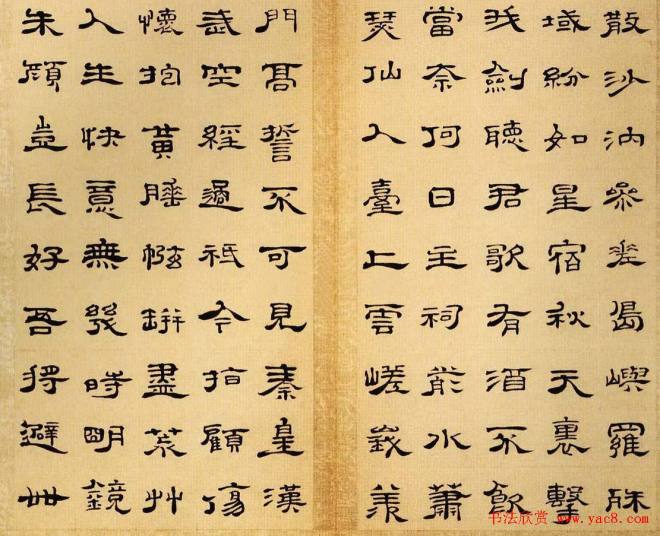 散沙汭參差島嶼羅殊
域紛如星宿秋天裏擊
我劍聽君歌有酒不飲
當奈何日主祠前水蕭
瑟仙人臺上雲嵯峩羨
門高誓不可見秦皇漢
武空經過祇今指顧傷
懷抱黃腄㡉缾盡荒艸
人生快意無幾時明鏡
朱顏豈長好吾將避世
书法欣赏 www.yac8.com